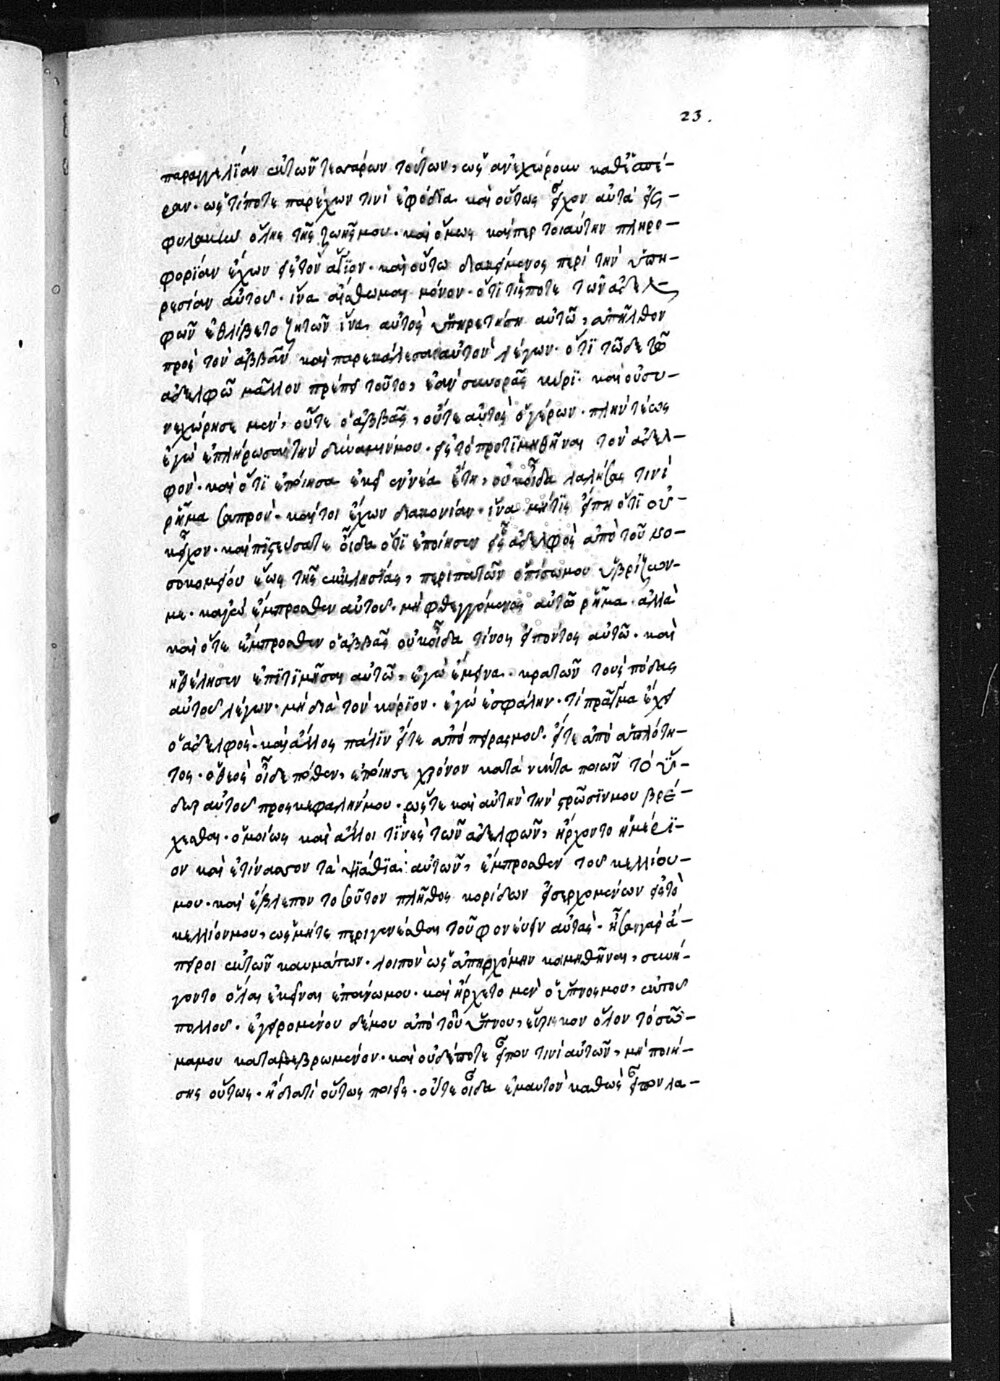 23.
παραγγελίαν ἐκ τῶν τεσσάρων τούτων, ὡς ἀνεχώρουν καθ' ἑσπέ-
ραν· ὥς τίποτε παρέχων τινὶ ἐφόδια· καὶ οὕτως εἶχον αὐτὰ εἰς
φυλακὴν ὅλης τῆς ζωῆς μου· καὶ ὅμως καίπερ τοιαύτην πληρο-
φορίαν ἔχων εἰς τὸν ἅγιον· καὶ οὕτω διακείμενος περὶ τὴν ὑπη-
ρεσίαν αὐτοῦ· ἵνα αἴσθωμαι μόνον· ὅτι τίς ποτε τῶν ἀδελ
φῶν ἐθλίβετο ζητῶν ἵνα αὐτὸς ὑπηρετήσῃ αὐτῷ, ἀπῆλθον
πρὸς τὸν ἀββᾶν καὶ παρεκάλεσα αὐτὸν λέγων· ὅτι τῷδε τῷ
ἀδελφῷ μᾶλλον πρέπει τοῦτο, ἐὰν συνορᾷς κύρι· καὶ οὐ συ-
νεχώρησε μεν, οὔτε ὁ ἀββᾶς, οὔτε αὐτὸς ὁ γέρων· πλὴν τέως
ἐγὼ ἐπλήρωσα τὴν δύναμίν μου· εἰς τὸ προτιμηθῆναι τὸν ἀδελ-
φόν· καὶ ὅτι ἐποίησα ἐκεῖ ἐννέα ἔτη, οὐκ οἶδα λαλήσας τινὶ
ῥῆμα σαπρόν· καίτοι ἔχων διακονίαν· ἵνα μήτις εἴπῃ ὅτι οὐ-
κ εἶχον· καὶ πιστεύσατε οἶδα ὅτι ἐποίησεν εἷς ἀδελφὸς ἀπὸ τοῦ νο-
σοκομείου ἕως τῆς ἐκκλησίας, περιπατῶν ὀπίσω μου ὑβρίζων-
με· κἀγὼ ἔμπροσθεν αὐτοῦ· μὴ φθεγγόμενος αὐτῷ ῥῆμα· ἀλλὰ
καὶ ὅτε ἔμπροσθεν ὁ ἀββᾶς οὐκ οἶδα τίνος εἰπόντος αὐτῷ· καὶ
ἠθέλησεν ἐπιτιμῆσαι αὐτῷ, ἐγὼ ἔμεινα κρατῶν τοὺς πόδας
αὐτοῦ λέγων· μὴ διὰ τὸν κύριον· ἐγὼ ἐσφάλην· τί πρᾶγμα ἔχει
ὁ ἀδελφός· καὶ ἄλλος πάλιν εἴτε ἀπὸ πειρασμοῦ· εἴτε ἀπὸ ἁπλότη-
τος· ὁ θεὸς οἶδε πόθεν, ἐποίησε χρόνον κατὰ νύκτα ποιῶν τὸ ὕ-
δωρ αὐτοῦ πρὸς κεφαλήν μου· ὥστε καὶ αὐτὴν τὴν στρῶσίν μου βρέ-
χεσθαι· ὁμοίως καὶ ἄλλοι τινὲς τῶν ἀδελφῶν, ἤρχοντο ἡμέρι-
ον καὶ ἐτίνασσον τὰ ψιάθια αὐτῶν, ἔμπροσθεν τοῦ κελλίου-
μου· καὶ ἔβλεπον τοσοῦτον πλῆθος κορίδων εἰσερχομένων εἰς τὸ
κελλίον μου, ὡς μήτε περιγενέσθαι τοῦ φονεύειν αὐτάς· ἦσαν γὰρ ἄ-
πειροι ἐκ τῶν καυμάτων· λοιπὸν ὡς ἀπηρχόμην κοιμηθῆναι, συνή-
γοντο ὅλαι ἐκεῖναι ἐπάνω μου· καὶ ἤρχετο μὲν ὁ ὕπνος μου, ἐκ τοῦ
πολλοῦ· ἐγειρομένου δέ μου ἀπὸ τοῦ ὕπνου, εὕρισκον ὅλον τὸ σῶ-
μα μου καταβεβρωμένον· καὶ οὐδέποτε εἶπον τινὶ αὐτῶν, μὴ ποιή-
σῃς οὕτως· ἢ διατί οὕτως ποιεῖς· οὔτε οἶδα ἐμαυτὸν καθὼς εἶπον λα-